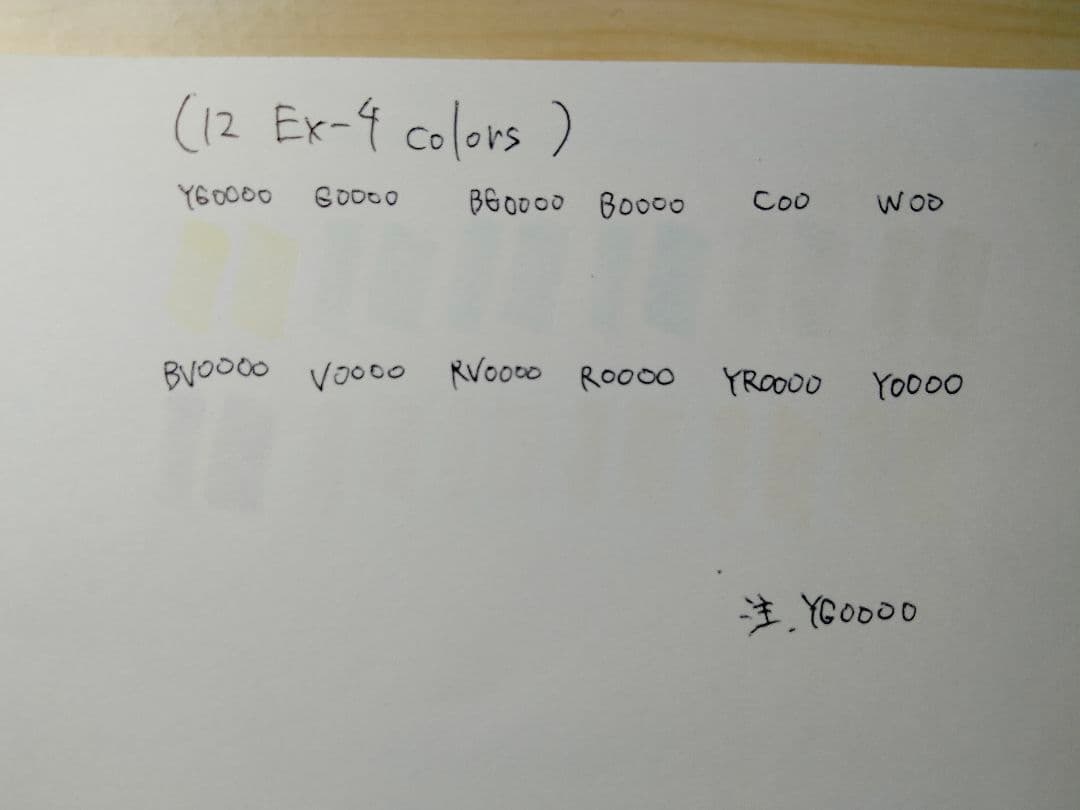 (12 Ex-4 colors)
YG0000 G0000 BG0000 B0000 C00 W00
BV0000 V0000 RV0000 R0000 YR0000 Y0000
注. YG0000